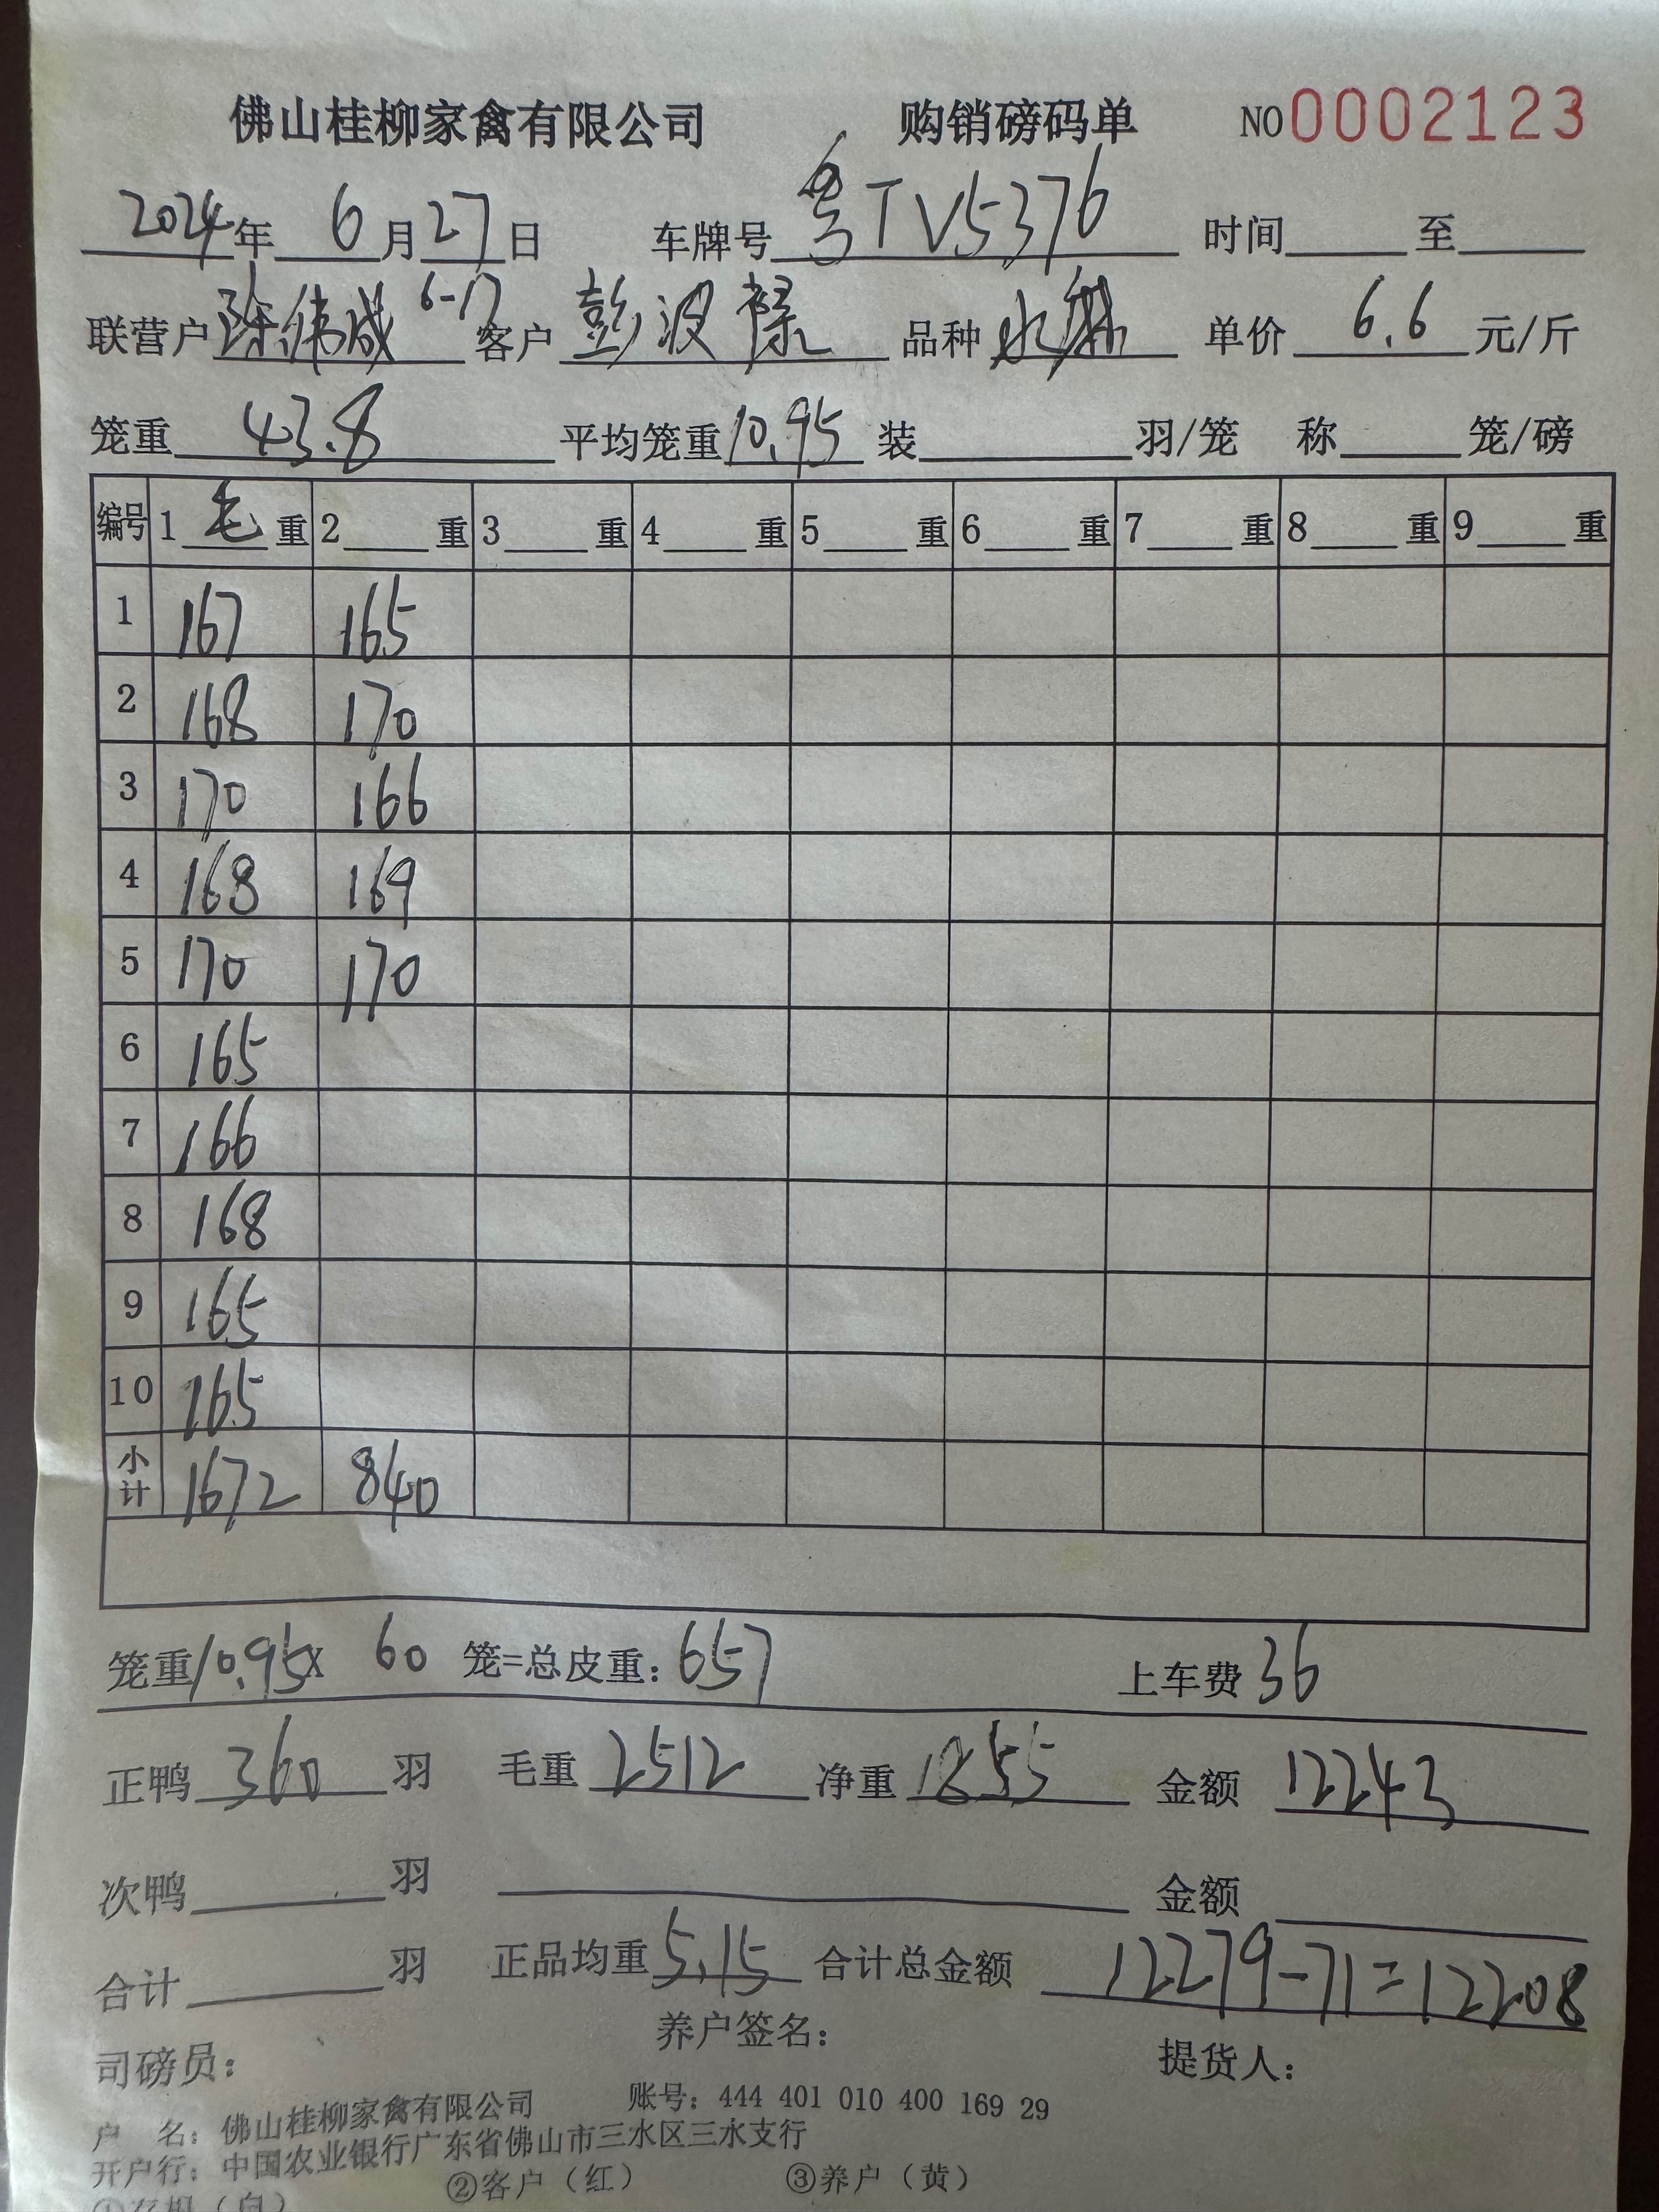 佛山桂柳家禽有限公司 购销磅码单 NO 0002123
2024年 6月27日 车牌号 粤TV5376 时间 至
联营户 陈伟成 6-17 客户 彭波 品种 水 单价 6.6 元/斤
笼重 43.8 平均笼重 10.95 装 羽/笼 称 笼/磅
编号 1 毛 重 2 重 3 重 4 重 5 重 6 重 7 重 8 重 9 重
1 167 165
2 168 170
3 170 166
4 168 169
5 170 170
6 165
7 166
8 168
9 165
10 165
小计 1672 840
笼重 10.95 X 60 笼=总皮重: 657 上车费 36
正鸭 360 羽 毛重 2512 净重 1855 金额 12243
次鸭 羽 金额
合计 羽 正品均重 5.15 合计总金额 12279-71=12208
司磅员: 养户签名: 提货人:
户 名: 佛山桂柳家禽有限公司 账号: 444 401 010 400 169 29
开户行: 中国农业银行广东省佛山市三水区三水支行
②客户（红） ③养户（黄）